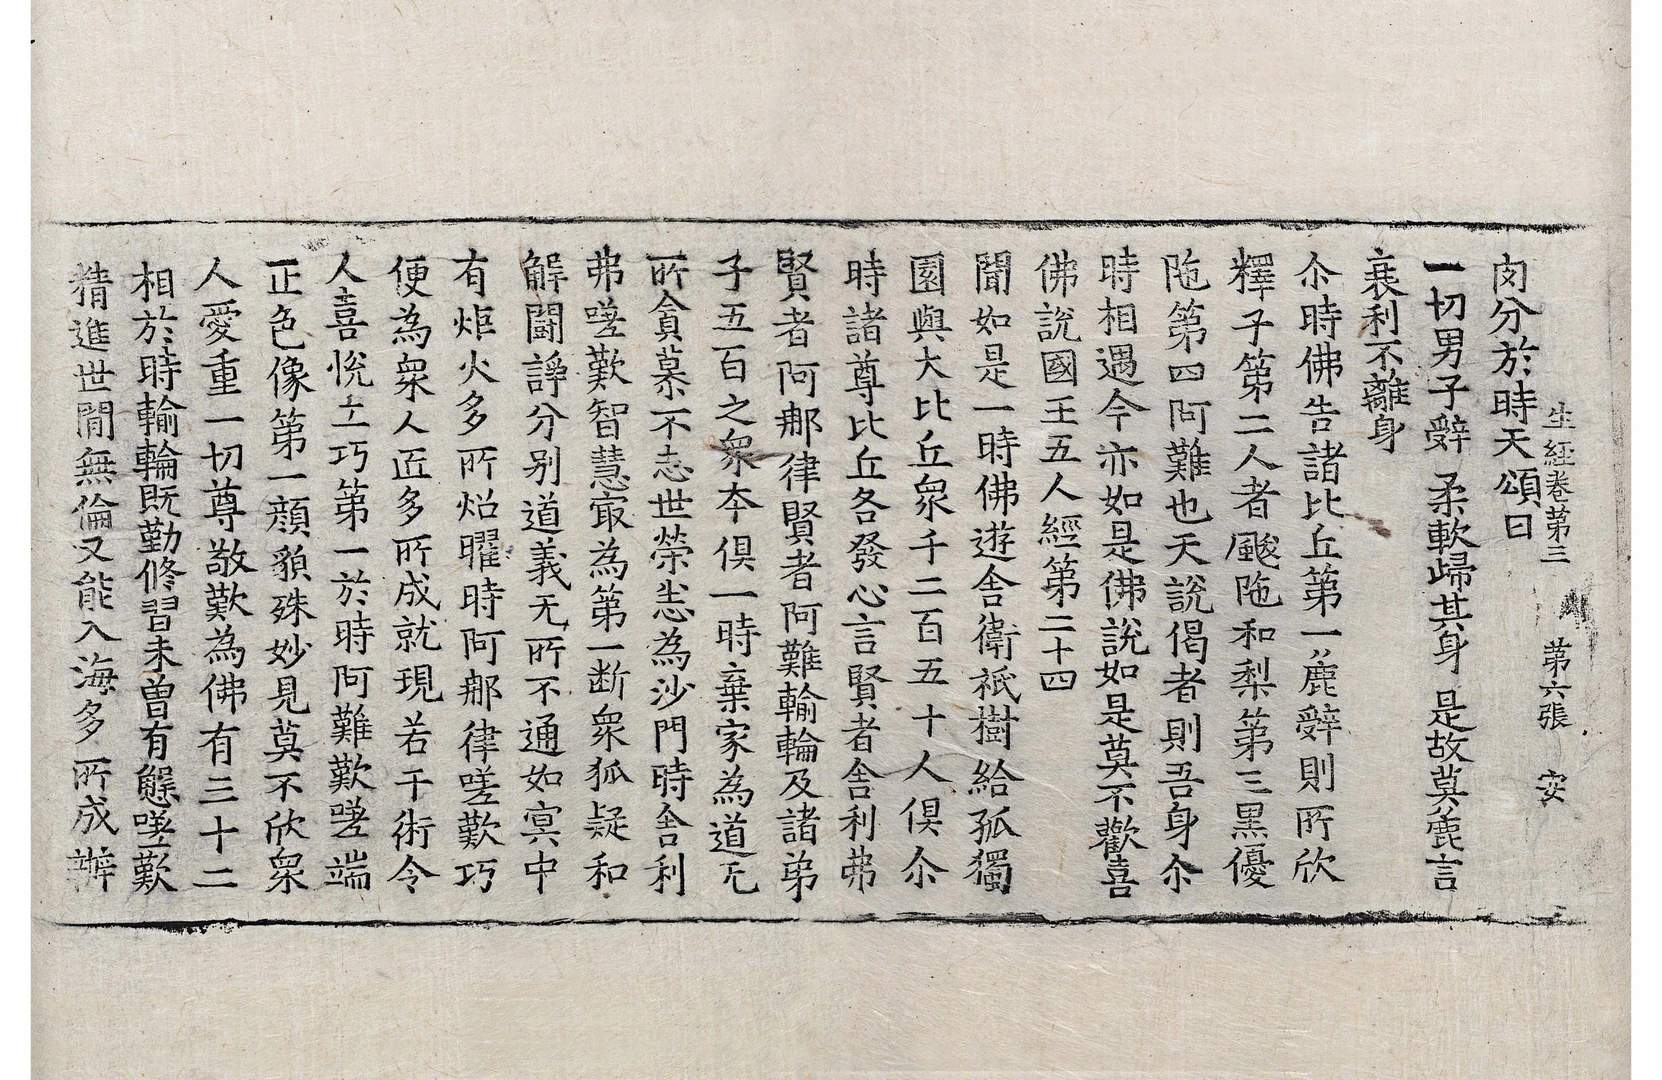 肉分於時天頌曰
生經卷第三 第六張 安
一切男子辝 柔軟歸其身 是故莫麁言
衰利不離身
尒時佛告諸比丘第一麁辝則所欣
釋子第二人者颰陁和梨第三黒優
陁第四阿難也天說偈者則吾身尒
時相遇今亦如是佛說如是莫不歡喜
佛說國王五人經第二十四
聞如是一時佛遊舍衛祇樹給孤獨
園與大比丘衆千二百五十人俱尒
時諸尊比丘各發心言賢者舍利弗
賢者阿那律賢者阿難輸輪及諸弟
子五百之衆夲俱一時棄家為道无
所貪慕不志世榮悲為沙門時舍利
弗嗟歎智慧㝡為第一断衆狐疑和
解闘諍分别道義无所不通如㝠中
有炬火多所炤曜時阿那律嗟歎巧
便為衆人匠多所成就現若干術令
人喜悅工巧第一於時阿難歎嗟端
正色像第一顔貌殊妙見莫不欣衆
人愛重一切尊敬歎為佛有三十二
相於時輸輪既勤修習未曾有懈嗟歎
精進世閒無倫又能入海多所成辦